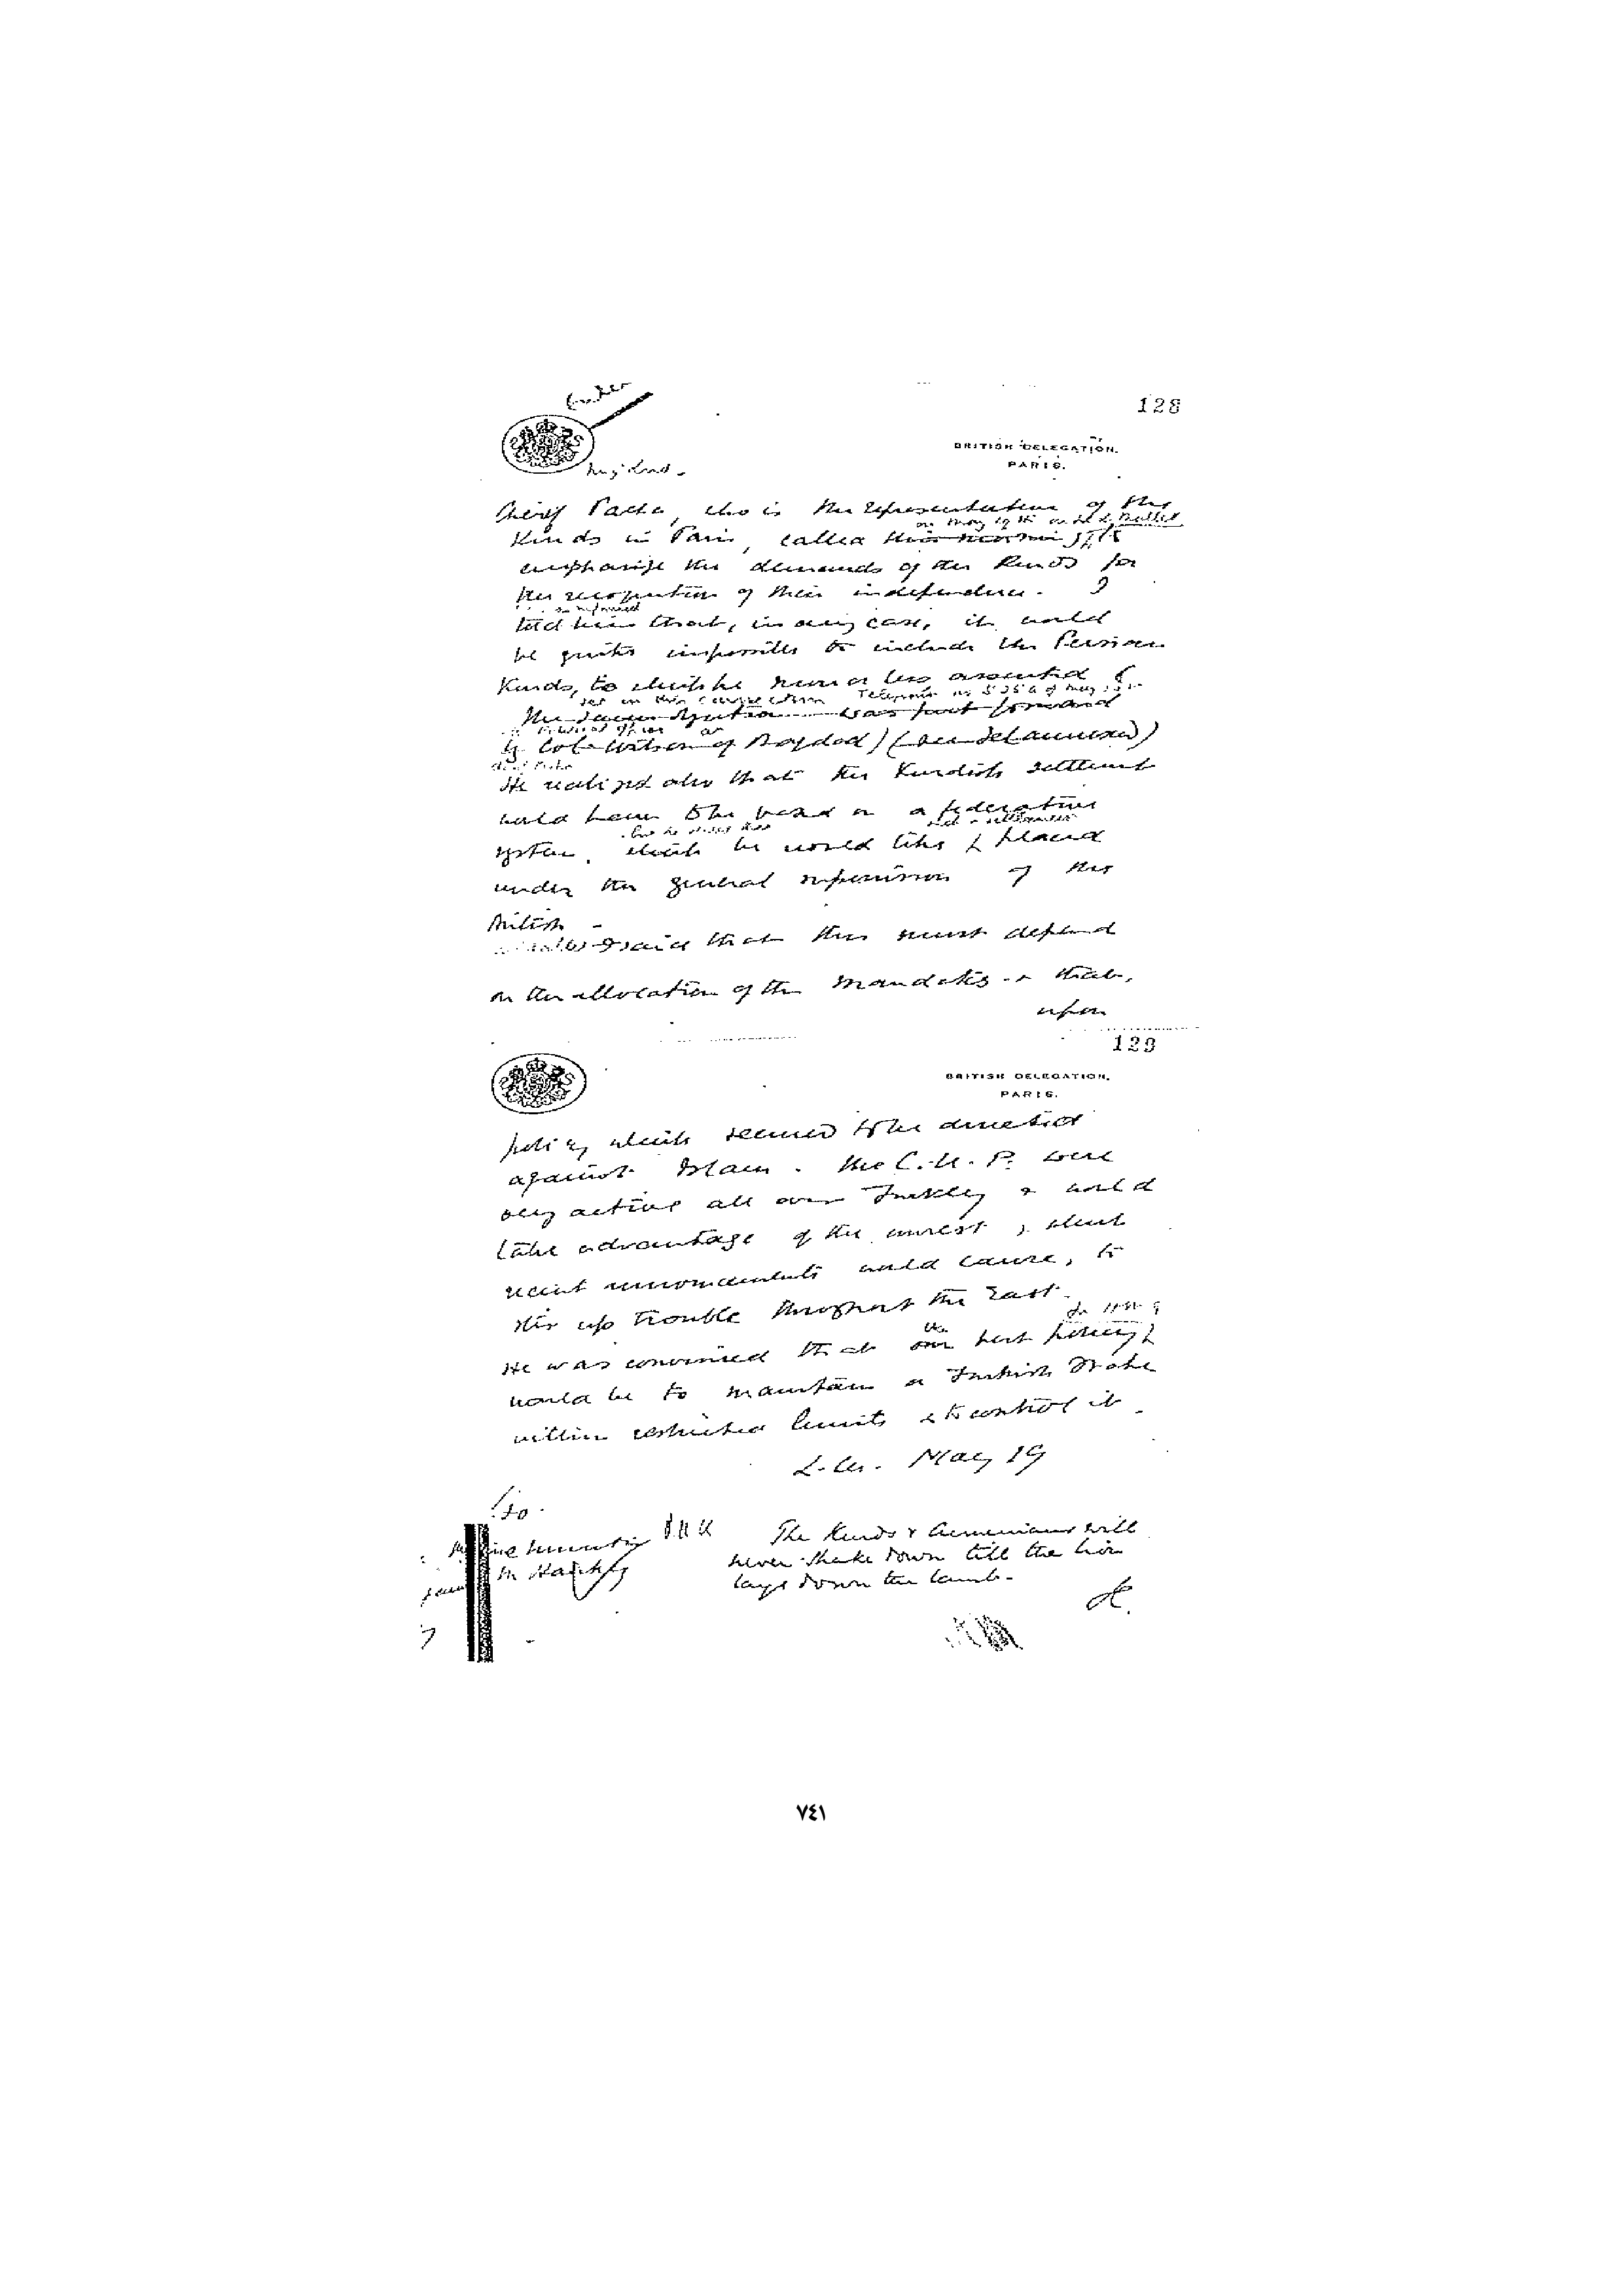 128
BRITISH DELEGATION,
PARIS.
Cherif Pasha, who is the representative of the
on May 19th on Sir L. Mallet
Kurds in Paris, called this morning to
emphasise the demands of the Kurds for
the recognition of their independence. I
informed
told him that, in any case, it would
be quite impossible to include the Persian
Kurds, to which he more or less assented (
in this connection Telegram no 5356 of May
The same was put forward
Political Officer at
by Col. Wilson of Bagdad) (see
He realized also that the Kurdish settlement
would have to be based on a federative
system, which he would like placed
under the general supervision of the
British
said that this must depend
on the allocation of the Mandates & that,
upon
129
BRITISH DELEGATION,
PARIS.
policy which seemed to be directed
against Islam. The C.U.P. were
very active all over Turkey & would
take advantage of the unrest, which
recent announcements would cause, to
stir up trouble throughout the East.
the
He was convinced that our best policy
would be to maintain a Turkish State
within restricted limits & to control it.
L. M. May 19
The Kurds & Armenians will
never shake down till the lion
lays down the lamb.
٧٤١